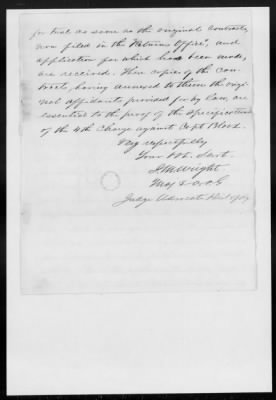 for trial as soon as the original contracts,
now filed in the "Returns Office", and
application for which has been made,
are received. These copies of the con-
tracts, having annexed to them the origi-
nal affidavits provided for by law, are
essential to the proof of the specifications
of the 4th Charge against Capt
Very respectfully
Your Obt. Servt.
J. M. Wright
Maj &
Judge Advocate